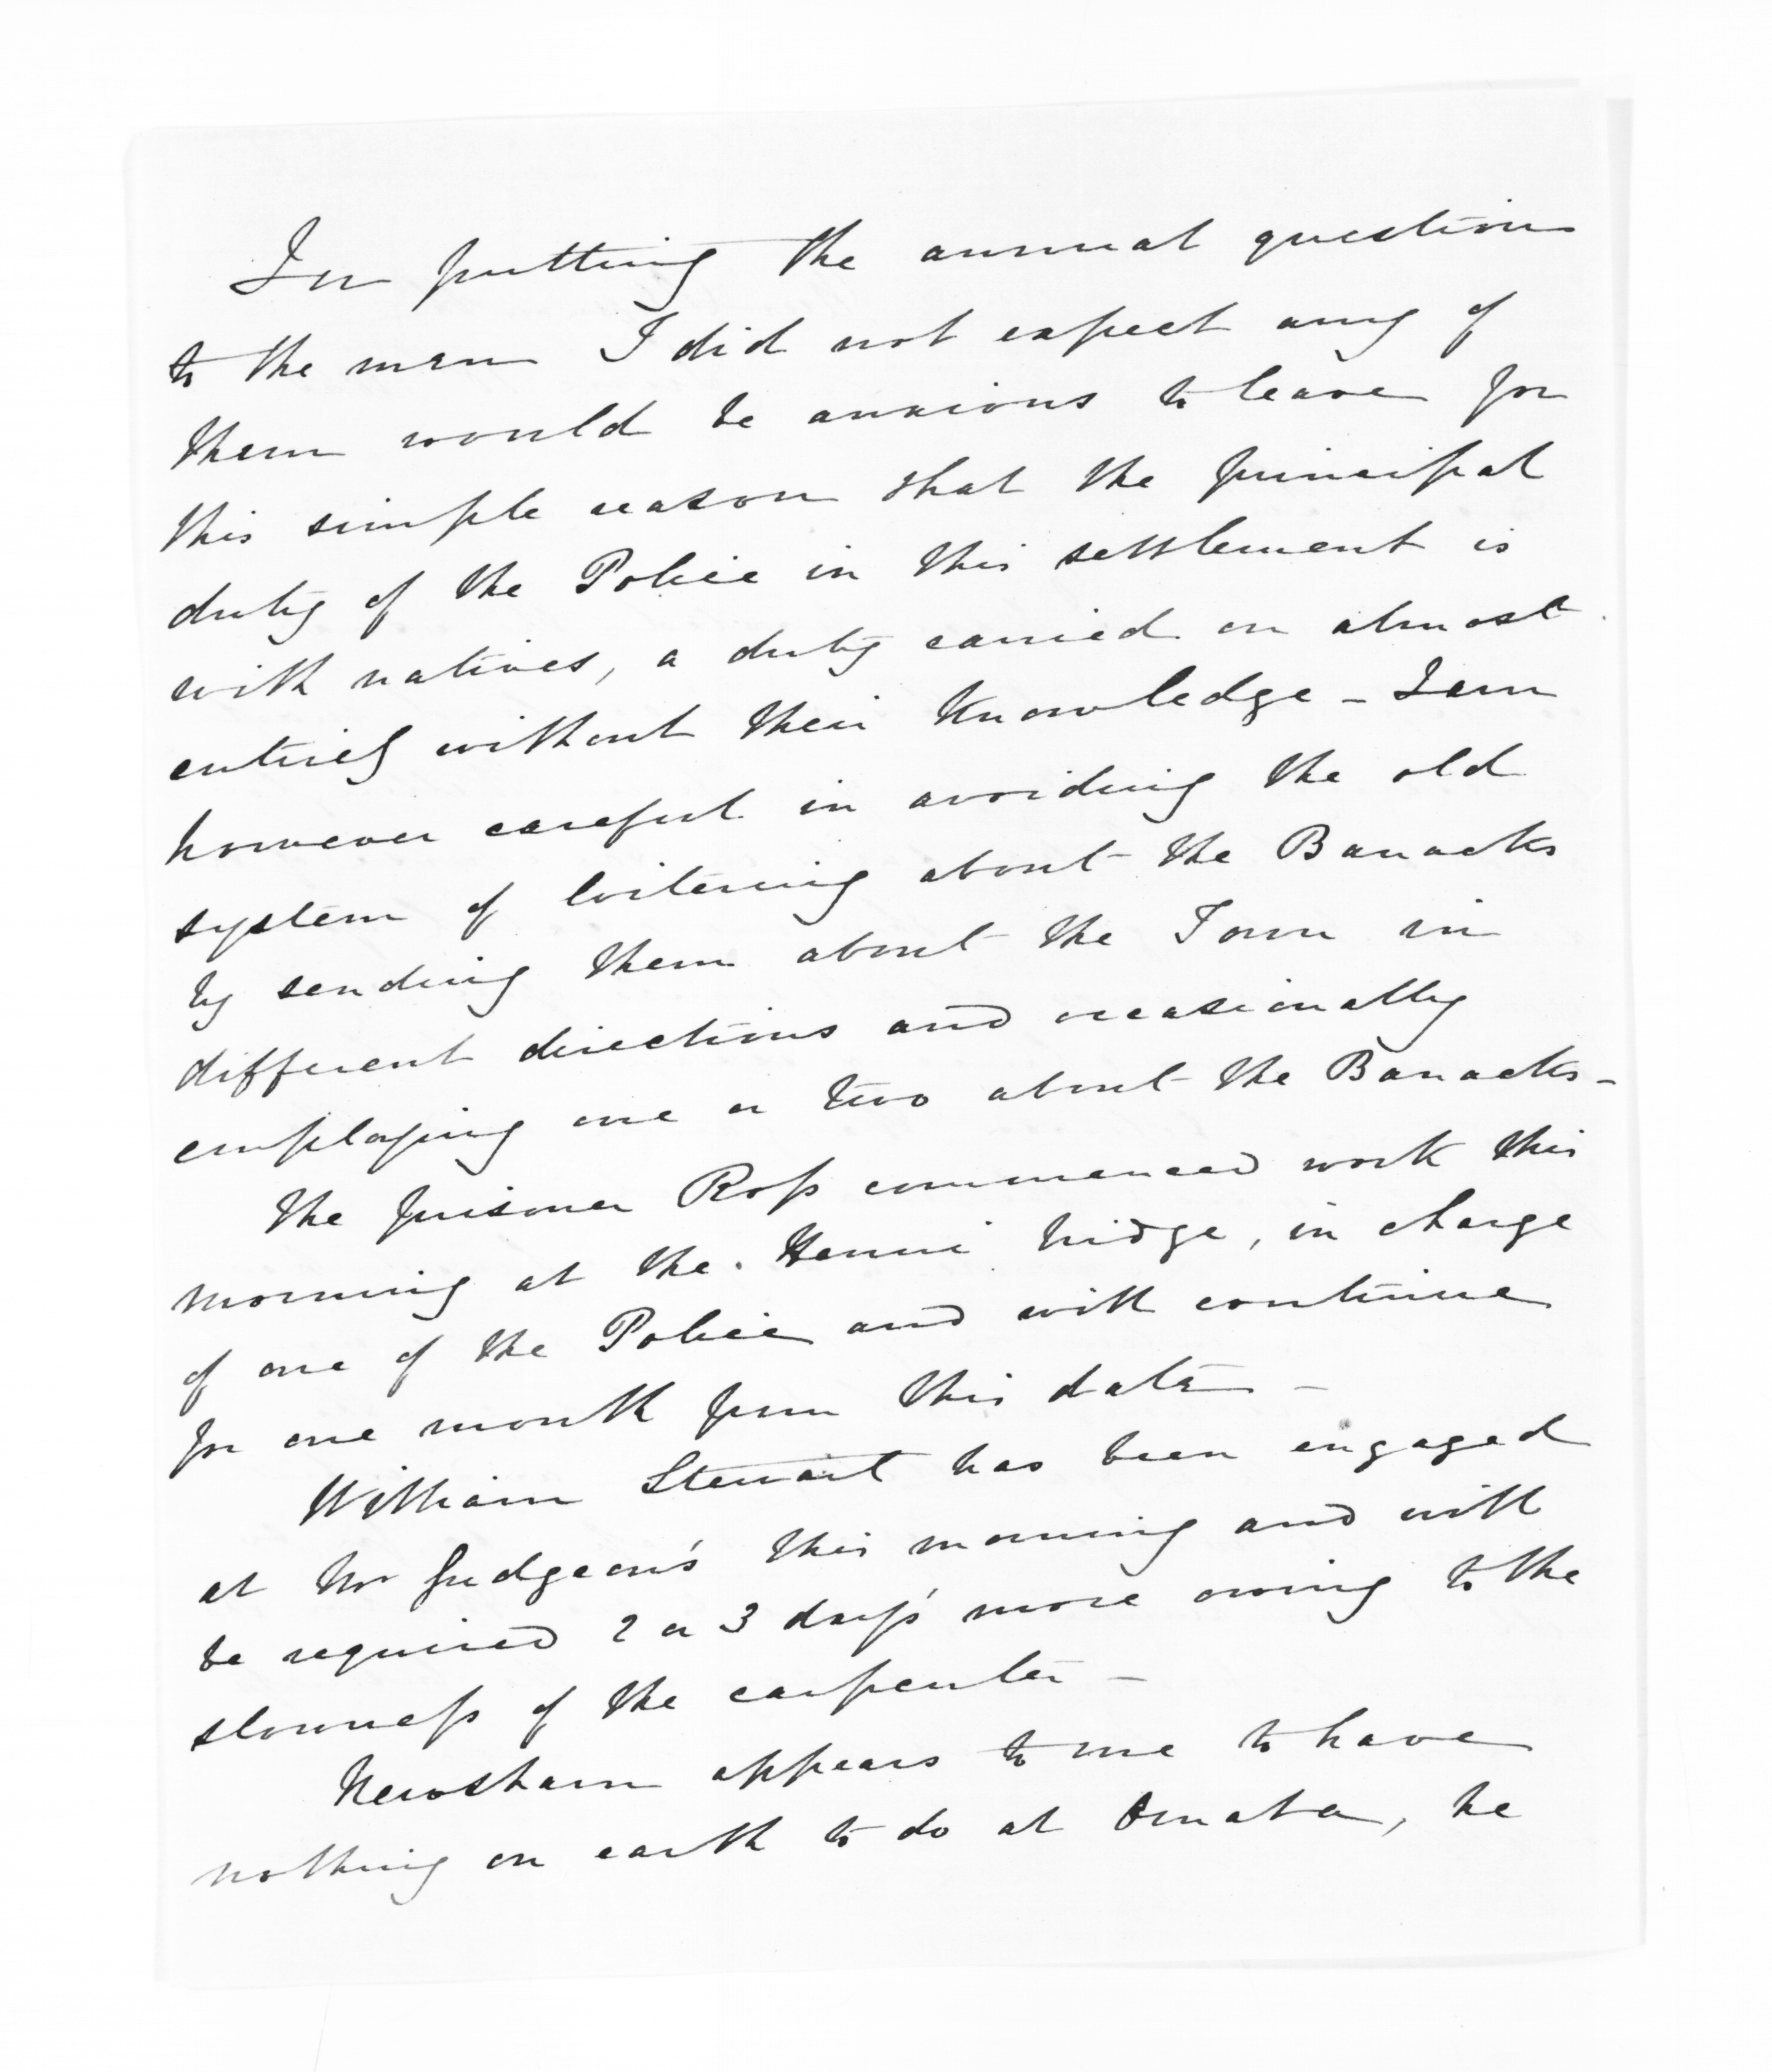 In putting the annual question
to the men I did not expect any of
them would be anxious to leave for
this simple reason that the principal
duty of the Police in this settlement is
with natives, a duty carried on almost
entirely without their knowledge - I am
however careful in avoiding the old
system of loitering about the Barracks
by sending them about the Town in
different directions and occasionally
employing one or two about the Barracks -
The prisoner Ross commenced work this
morning at the Henui bridge, in charge
of one of the Police and will continue
for one month from this date -
William Stewart has been engaged
at Mr Gudgeon's this morning and will
be required 2 or 3 days more owing to the
slowness of the carpenter -
Newsham appears to me to have
nothing on earth to do at Omata, he